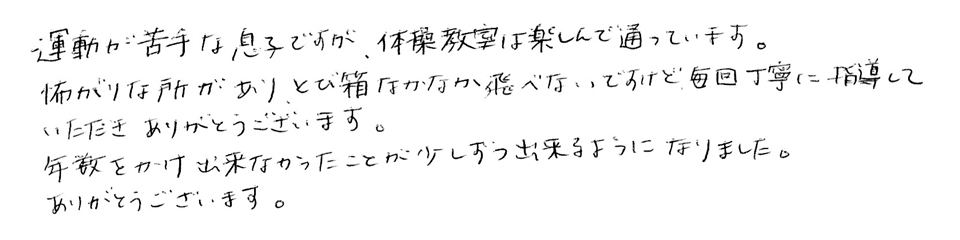 運動が苦手な息子ですが、体操教室は楽しんで通っています。
怖がりな所があり、とび箱なかなか飛べないですけど毎回丁寧に指導して
いただき ありがとうございます。
年数をかけ 出来なかったことが少しずつ出来るようになりました。
ありがとうございます。